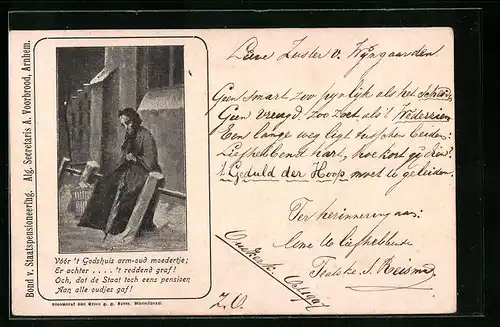 Bond v. Staatspensioneering. Alg. Secretaris A. Voorbrood, Arnhem.
Vóór 't Godshuis arm-oud moedertje;
Er achter .... 't reddend graf!
Och, dat de Staat toch eens pensioen
Aan alle oudjes gaf!
Lieve Zuster v. Wijngaarden
Geen smart zoo pijnlyk als het scheiden
Geen vreugd, zoo zoet als 't Wederzien
Een lange weg ligt tusschen beiden:
Liefhebbend hart, hoe kort gij dien?
't Geduld der Hoop moet te geleiden.
Ter herinnering aan:
Uwe te liefhebbende
Oudkerk
Z.O.